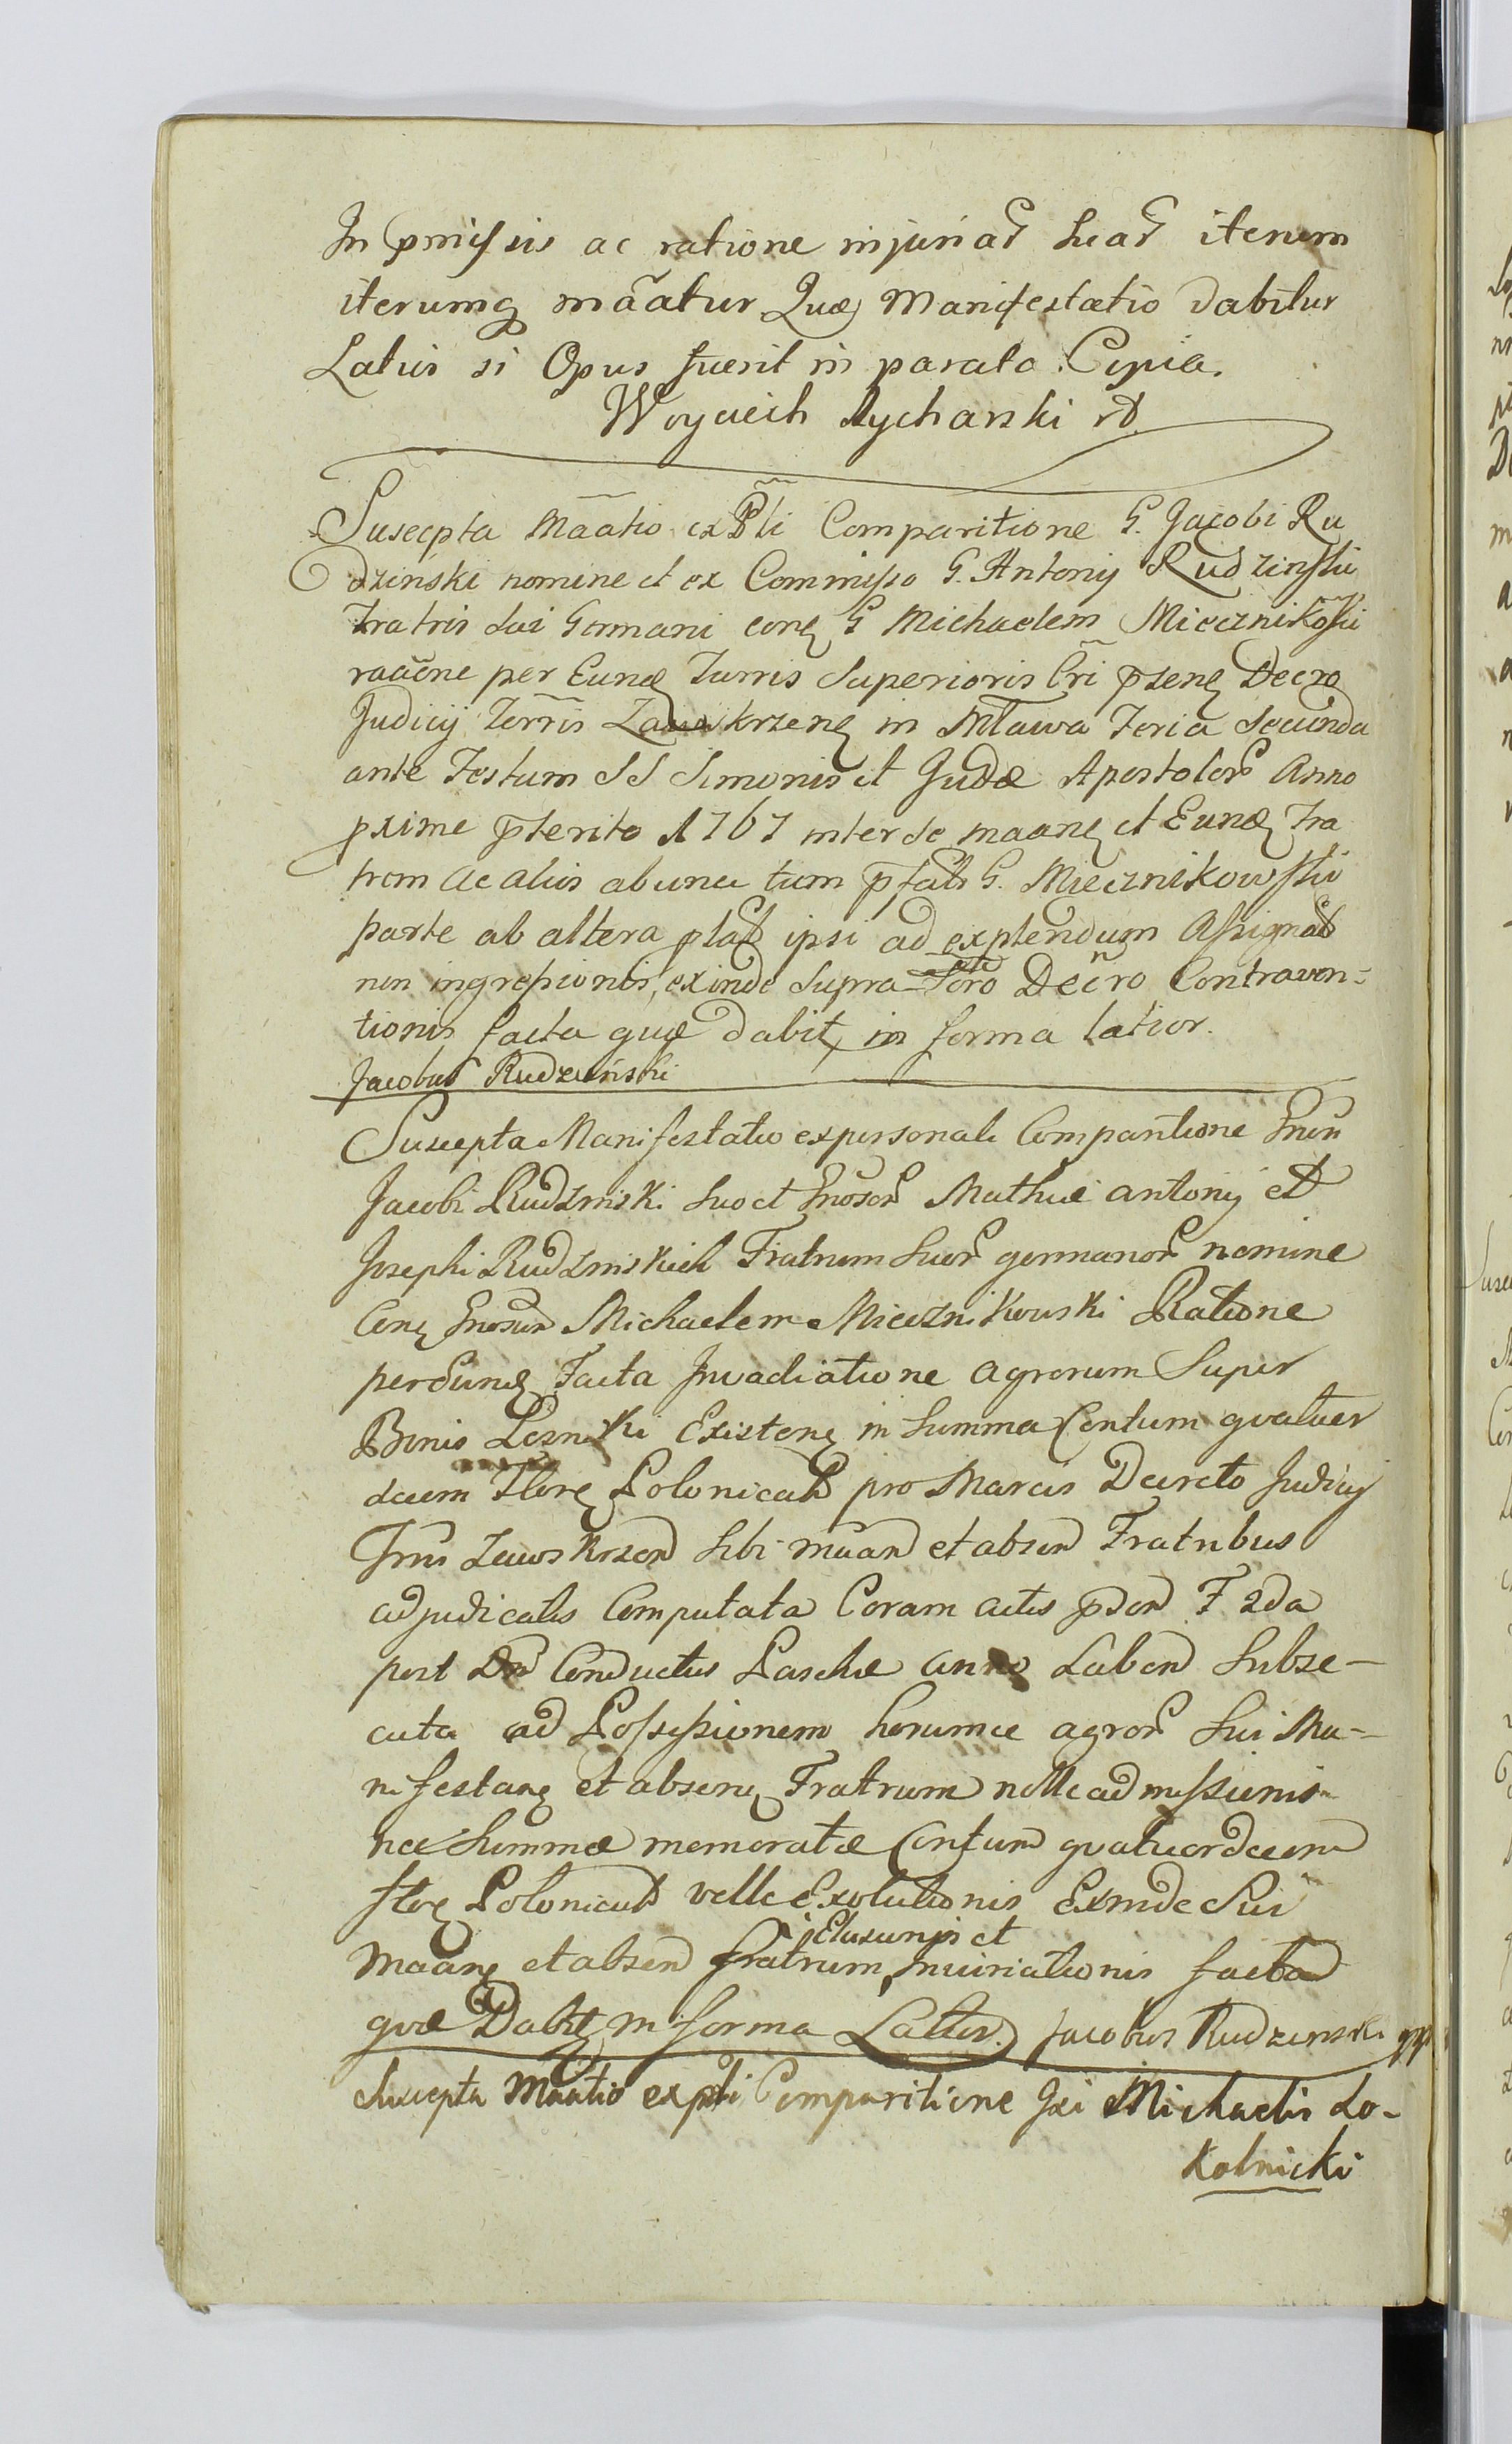 In pmissis ac ratione injuriar suar iterum
iterumq mãatur Quæ Manifestatio dabitur
Latius si Opus fuerit in parato Copia.
Woyciech Rycharski
Suscepta Mãatio ex Pli Comparitione G. Jacobi Ru
dzinski nomine et ex Commisso G. Antonij Rudzinski
Fratris Sui Germani conq G Michaelem Miecznikoski
raõne per Eund Turris Superioris Cri Decro
Judicij Terris Zawskrzenq in Mława Feria Secunda
ante Festum SS Simonis et Judæ Apostolor Anno
pxime pterito 1767 inter se maanq et Eund Fra
trem ac aliis ab una tum pfat G. Miecznikowski
parte ab altera ptab ipsi ad explendum Assignat
non ingressionis, exinde supra Scro Decro Contraven=
tionis facta quæ dabit in forma latior.
Jacobus Rudzinski
Suscepta Manifestatio ex personali Comparitione Gnsi
Jacobi Rudzinski suo et Gnosor Mathiæ Antonij et
Josephi Rudzinskich Fratrum Suor germanor nomine
Conq Gnosum Michaelem Miecznikowski Ratione
per Eund Facta Invadiatione agrorum Super
Bonis Existenq in Summa Centum quatuor
decem Flore Polonical pro Marcis Decreto Judicij
Trris Zawskrzen sibi maan et absen Fratribus
adjudicatis Computata Coram actis pden F 2da
post Dn Conductus Paschæ anno Laben Subse-
cuta ad Possessionem horumce agror Sui Ma-
nifestanq et absenq Fratrum nolle admissionis
nec Summæ memoratæ Centum quatuordecim
flore Polonical velle Exolutionis Exinde Sui
Elusionis et
Maanq et absen fratrum, injuriationis facta
quæ Dabit in forma Latior. Jacobus Rudzinski mp
Suscepta Maatio ex pli Comparitione Gsi Michaelis So-
kolnicki